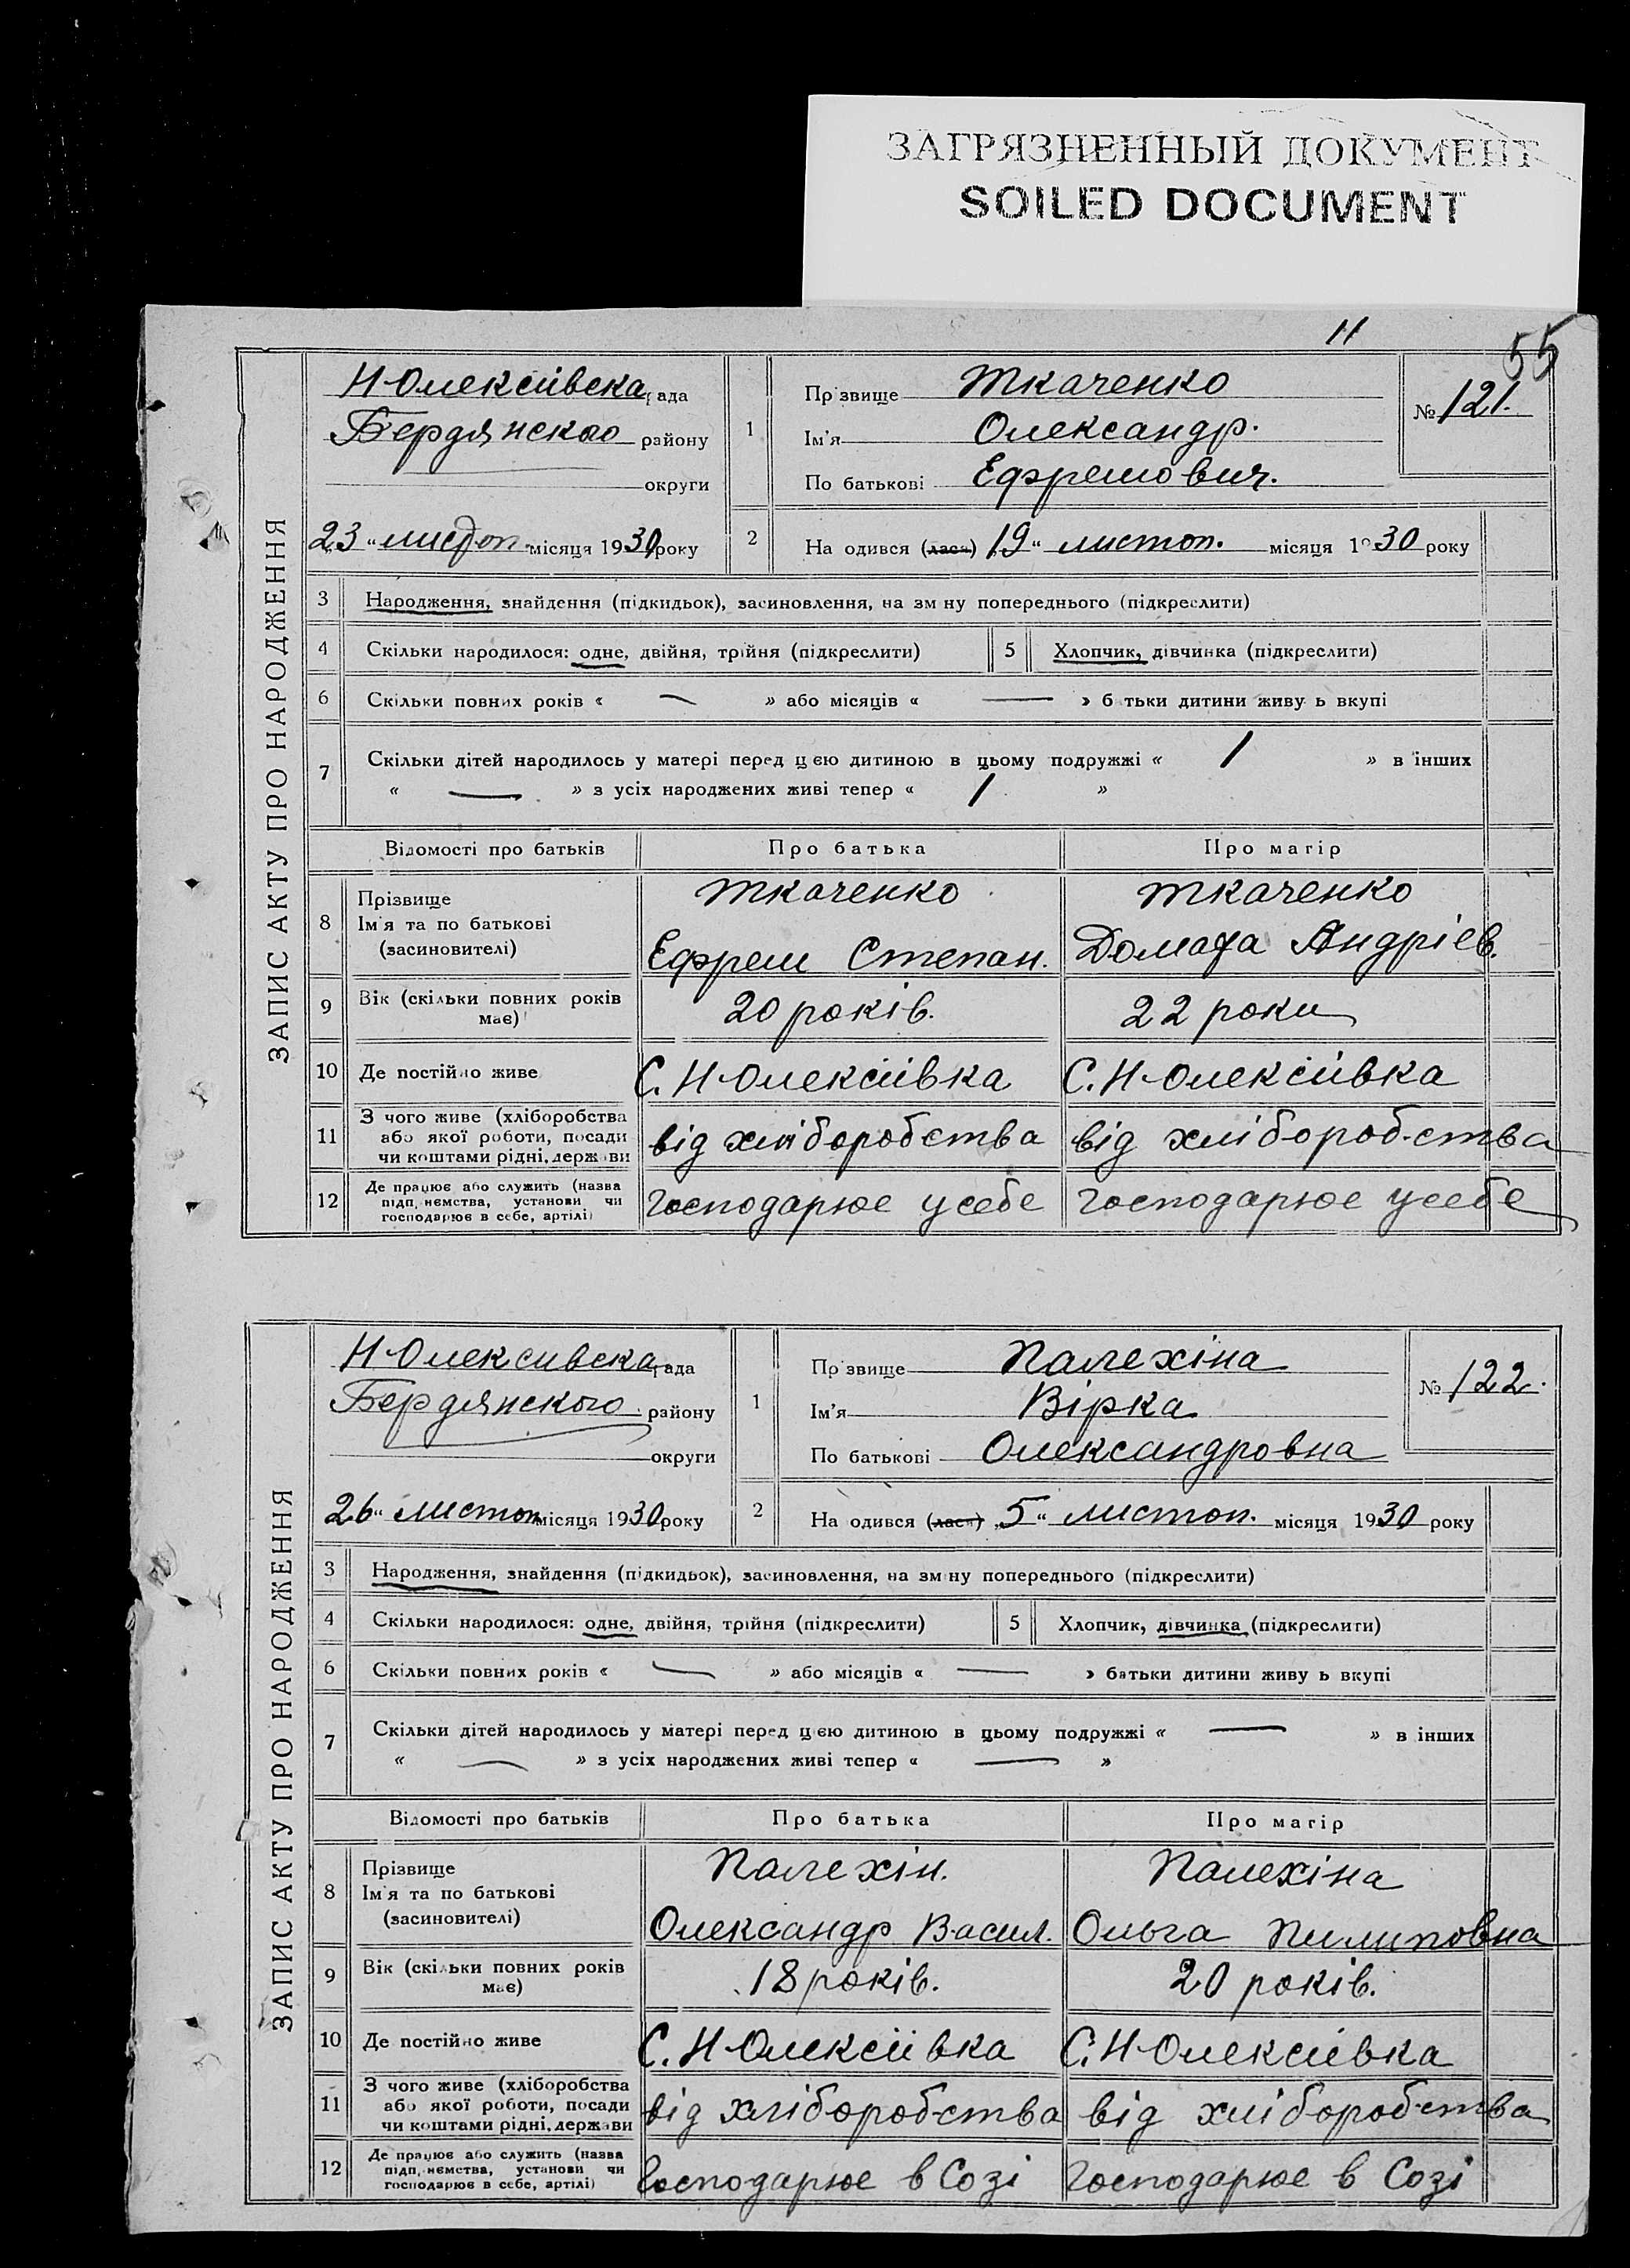 ЗАГРЯЗНЕННЫЙ ДОКУМЕНТ
SOILED DOCUMENT
11
55
ЗАПИС АКТУ ПРО НАРОДЖЕННЯ
Н-Олексіївска рада
Бердянского району
округи
23 "листоп. місяця 1930 року
1
Прізвище Ткаченко
Ім'я Олександр.
По батькові Ефремович.
№ 121.
2
На одився (лася) 19 " листоп. місяця 1930 року
3 Народження, знайдення (підкидьок), засиновлення, на зм ну попереднього (підкреслити)
4 Скільки народилося: одне, двійня, трійня (підкреслити) 5 Хлопчик, дівчинка (підкреслити)
6 Скільки повних років « — » або місяців « — » б тьки дитини живу ь вкупі
7 Скільки дітей народилось у матері перед цією дитиною в цьому подружжі « 1 » в інших
« — » з усіх народжених живі тепер « 1 »
Відомості про батьків Про батька Про матір
8 Прізвище Ткаченко Ткаченко
Ім'я та по батькові
(засиновителі) Ефрем Степан. Домаха Андріев.
9 Вік (скільки повних років має) 20 років. 22 роки
10 Де постійно живе С. Н-Олексіївка С. Н-Олексіївка
11 З чого живе (хліборобства
або якої роботи, посади
чи коштами рідні, держави від хліборобства від хліборобства
12 Де працює або служить (назва
підп, немства, установи чи
господарює в себе, артілі) Господарює у себе господарює у себе
ЗАПИС АКТУ ПРО НАРОДЖЕННЯ
Н-Олексивска рада
Бердянского району
округи
26 " листоп місяця 1930 року
1
Пр звище Палехіна
Ім'я Вірка
По батькові Олександровна
№ 122.
2
На одився (лася) 5 " листоп. місяця 1930 року
3 Народження, знайдення (підкидьок), засиновлення, на зм ну попереднього (підкреслити)
4 Скільки народилося: одне, двійня, трійня (підкреслити) 5 Хлопчик, дівчинка (підкреслити)
6 Скільки повних років « — » або місяців « — » батьки дитини живу ь вкупі
7 Скільки дітей народилось у матері перед цією дитиною в цьому подружжі « — » в інших
« — » з усіх народжених живі тепер « — »
Відомості про батьків Про батька Про матір
8 Прізвище Палехін. Палехіна
Ім'я та по батькові
(засиновителі) Олександр Васил. Ольга Пилиповна
9 Вік (скільки повних років має) 18 років. 20 років.
10 Де постійно живе С. Н-Олексіївка С. Н-Олексіївка
11 З чого живе (хліборобства
або якої роботи, посади
чи коштами рідні, держави від хліборобства від хліборобства
12 Де працює або служить (назва
підп, немства, установи чи
господарює в себе, артілі) Господарює в Созі Господарює в Созі